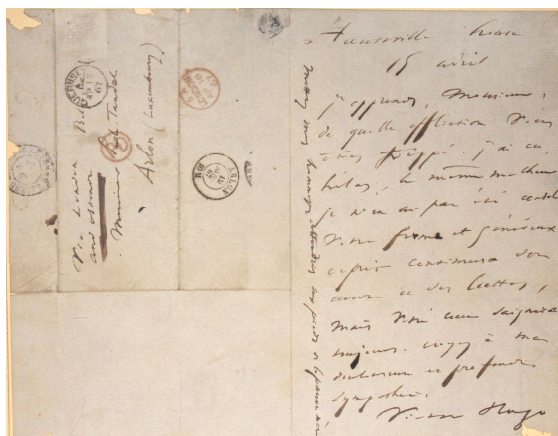 Hauteville house
15 avril
j'apprends, Monsieur,
de quelle affliction vous
êtes frappé. j'ai eu
hélas, le même malheur
je n'en ai pas été consolé
Votre ferme et généreux
esprit continuera son
œuvre et ses luttes,
mais votre cœur saignera
toujours. croyez à ma
douloureuse et profonde
sympathie.
Victor Hugo
mettez mes hommages attendris aux pieds de la pauvre mère
Via London
and ostende
Monsieur Tandel
Arlon (Luxembourg)
GUERNSEY
LONDON
ARLON